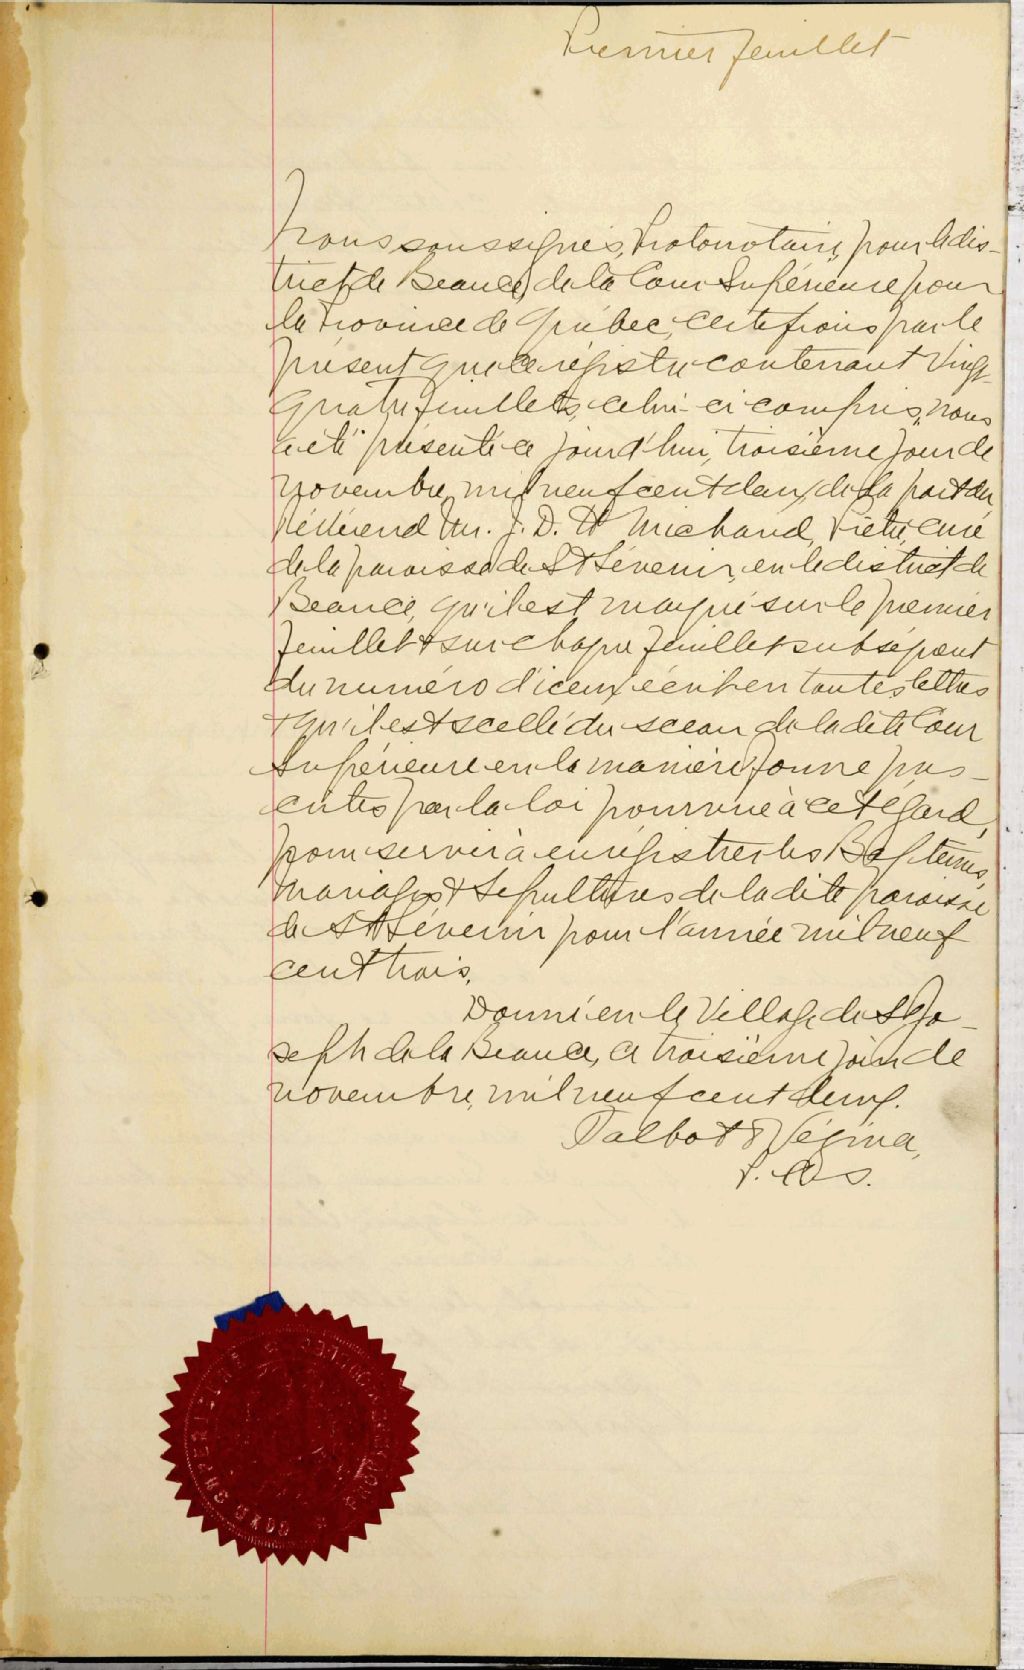 Premier feuillet
Nous soussignés, Protonotaire, pour le dis-
trict de Beauce, de la Cour Supérieure pour
la Province de Québec, certifions par le
présent que ce régistre contenant Vingt-
quatre feuillets, celui-ci compris, nous
a été présenté ce jourd'hui, troisième jour de
novembre, mil neuf cent deux, de la part du
Révérend Mr. J. D. H Michaud, Prêtre, curé
de la paroisse de St Séverin, en le district de
Beauce, qu'il est marqué sur le premier
feuillet & sur chaque feuillet subséquent
du numéro d'iceux écrit en toutes lettres
& qu'il est scellé du sceau de la dite Cour
Supérieure en la manière & forme pres-
crites par la loi pourvue à cet égard,
pour servir à enrégistrer les Baptêmes,
Mariages & Sépultures de la dite paroisse
de St Séverin pour l'année mil neuf
cent trois.
Donné en le Village de St Jo-
seph de la Beauce, ce troisième jour de
novembre, mil neuf cent deux.
Talbot & Vézina,
P. C. S.
COUR SUPERIEURE